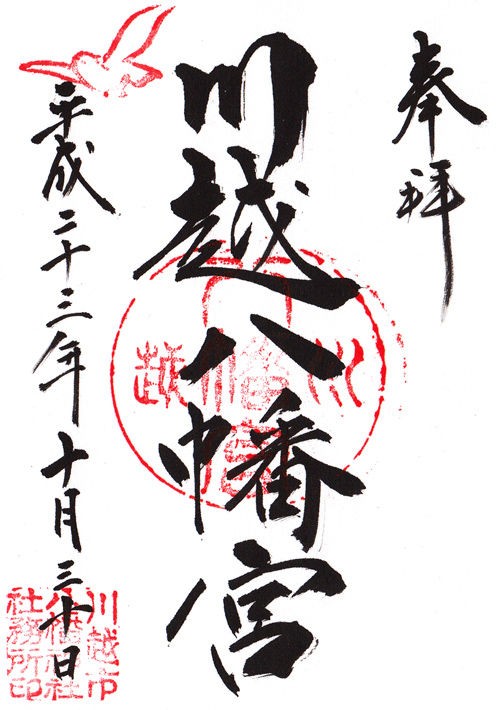 奉拝
川越八幡宮
平成二十三年十月三十日
川越市
八幡神社
社務所印